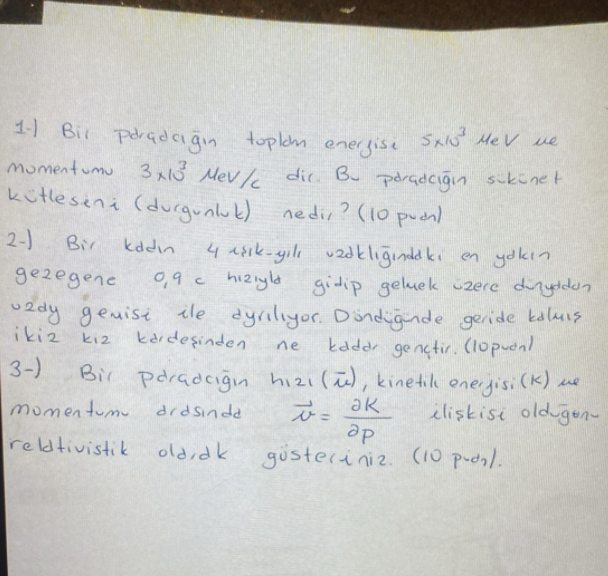 1-) Bir parçacığın toplam enerjisi 5x10³ MeV ve
momentumu 3x10³ MeV/c dir. Bu parçacığın sükünet
kütlesini (durgunluk) nedir? (10 puan)
2-) Bir kadın 4 ışık-yılı uzaklığındaki en yakın
gezegene 0,9 c hızıyla gidip gelmek üzere dünyadan
uzay gemisi ile ayrılıyor. Döndüğünde geride kalmış
ikiz kız kardeşinden ne kadar gençtir. (10 puan)
3-) Bir parçacığın hızı (u⃗), kinetik enerjisi (K) ve
momentumu arasında v⃗ = ∂K/∂p ilişkisi olduğunu
relativistik olarak gösteriniz. (10 puan).